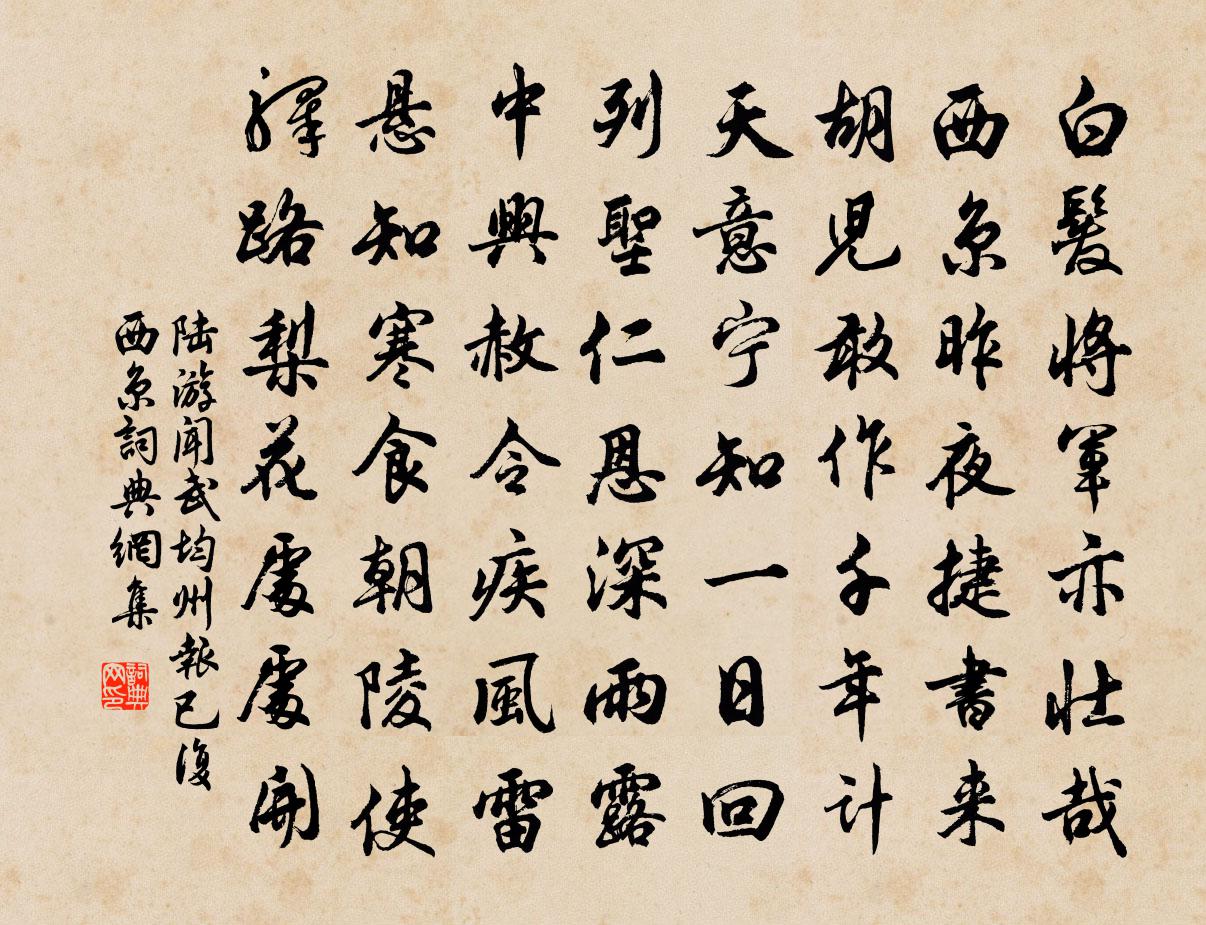 白髮將軍亦壯哉
西京昨夜捷書来
胡児敢作千年计
天意宁知一日回
列聖仁恩深雨露
中興赦令疾風雷
悬知寒食朝陵使
驛路梨花處處開
陆游闻武均州報已復
西京詞典網集
詞典网印